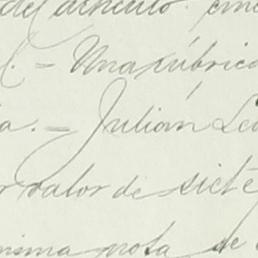 del
l. = Una rúbrica
a. = Julián Le
valor de siete
misma nota de